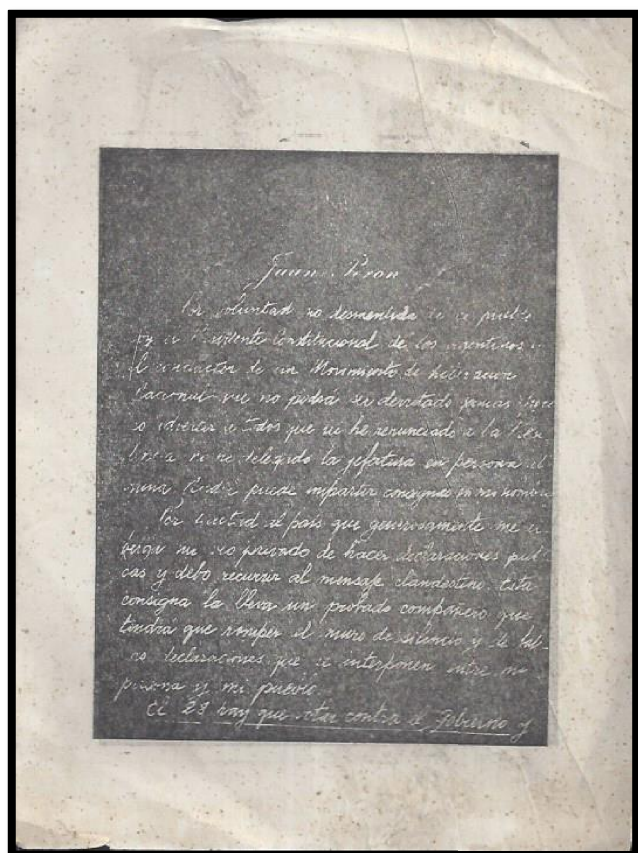 Juan Peron
Por voluntad no desmentida de un pueblo
soy el Presidente Constitucional de los argentinos y
el conductor de un Movimiento de Liberacion
Nacional que no podrá ser derrotado jamas
advertir a todos que no he renunciado a la
ni he delegado la jefatura en persona al
guna. Nadie puede impartir consignas en mi nombre
Por lealtad al país que generosamente me al
berga me veo privado de hacer declaraciones públi
cas y debo recurrir al mensaje clandestino. Esta
consigna la lleva un probado compañero que
tendrá que romper el muro de silencio y de fal-
sas declaraciones que se interponen entre mi
persona y mi pueblo.
El 28 hay que votar contra el Gobierno y